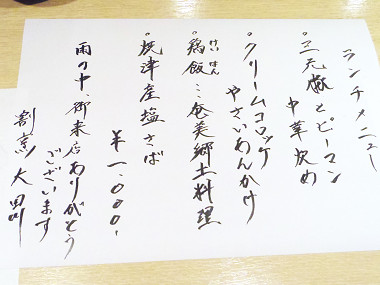 ランチメニュー
・三元豚とピーマン
中華炒め
・クリームコロッケ
やさいあんかけ
・鶏飯…奄美郷土料理
けいはん
・焼津産塩さば
¥一.000-
雨の中、御来店ありがとう
ございます
割烹 大田川